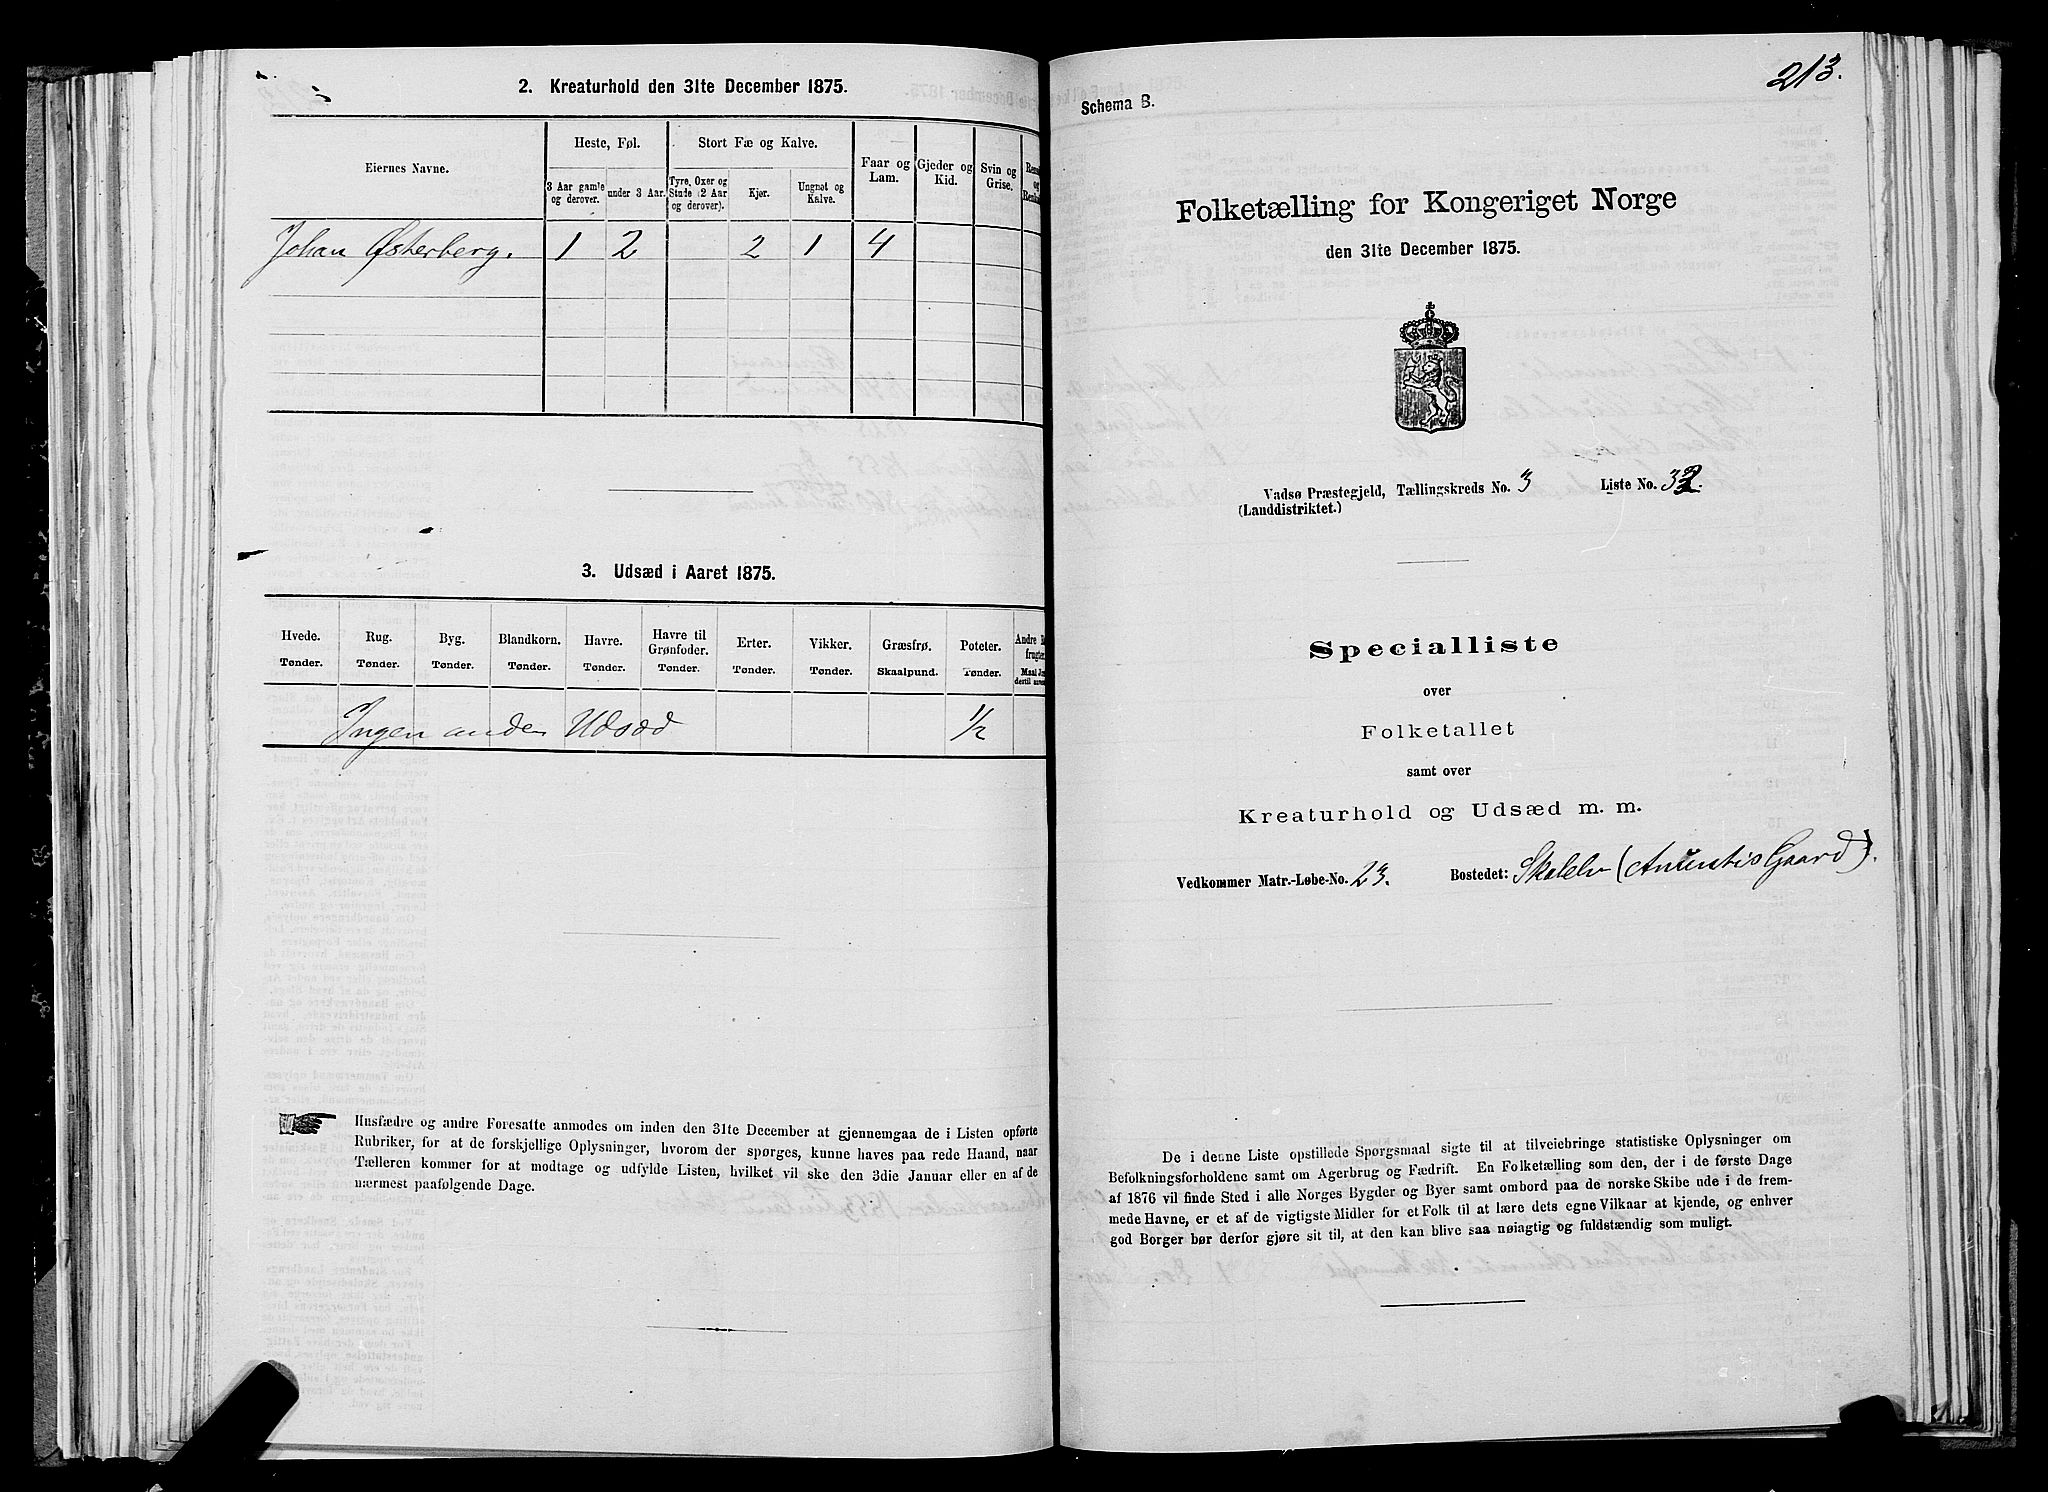 2. Kreaturhold den 31te December 1875.
Eiernes Navne.
Heste, Føl.
Stort Fæ og Kalve.
Faar og Lam.
Gjeder og Kid.
Svin og Grise.
3 Aar gamle og derover.
under 3 Aar.
Tyre, Oxer og Stude (2 Aar og derover).
Kjør.
Ungnøt og Kalve.
Johan Østerberg. 1 2 2 1 4
3. Udsæd i Aaret 1875.
Hvede. Rug. Byg. Blandkorn. Havre. Havre til Grønfoder. Erter. Vikker. Græsfrø. Poteter.
Tønder. Tønder. Tønder. Tønder. Tønder. Tønder. Tønder. Tønder. Skaalpund. Tønder.
Ingen anden Udsæd 1/2
Husfædre og andre Foresatte anmodes om inden den 31te December at gjennemgaa de i Listen opførte
Rubriker, for at de forskjellige Oplysninger, hvorom der spørges, kunne haves paa rede Haand, naar
Tælleren kommer for at modtage og udfylde Listen, hvilket vil ske den 3die Januar eller en af de
nærmest paafølgende Dage.
213.
Schema B.
Folketælling for Kongeriget Norge
den 31te December 1875.
Vadsø Præstegjeld, Tællingskreds No. 3 Liste No. 32.
(Landdistriktet.)
Specialliste
over
Folketallet
samt over
Kreaturhold og Udsæd m. m.
Vedkommer Matr.-Løbe-No. 23. Bostedet: Skalelv (Anuntis Gaard).
De i denne Liste opstillede Spørgsmaal sigte til at tilveiebringe statistiske Oplysninger om
Befolkningsforholdene samt om Agerbrug og Fædrift. En Folketælling som den, der i de første Dage
af 1876 vil finde Sted i alle Norges Bygder og Byer samt ombord paa de norske Skibe ude i de frem-
mede Havne, er et af de vigtigste Midler for et Folk til at lære dets egne Vilkaar at kjende, og enhver
god Borger bør derfor gjøre sit til, at den kan blive saa nøiagtig og fuldstændig som muligt.